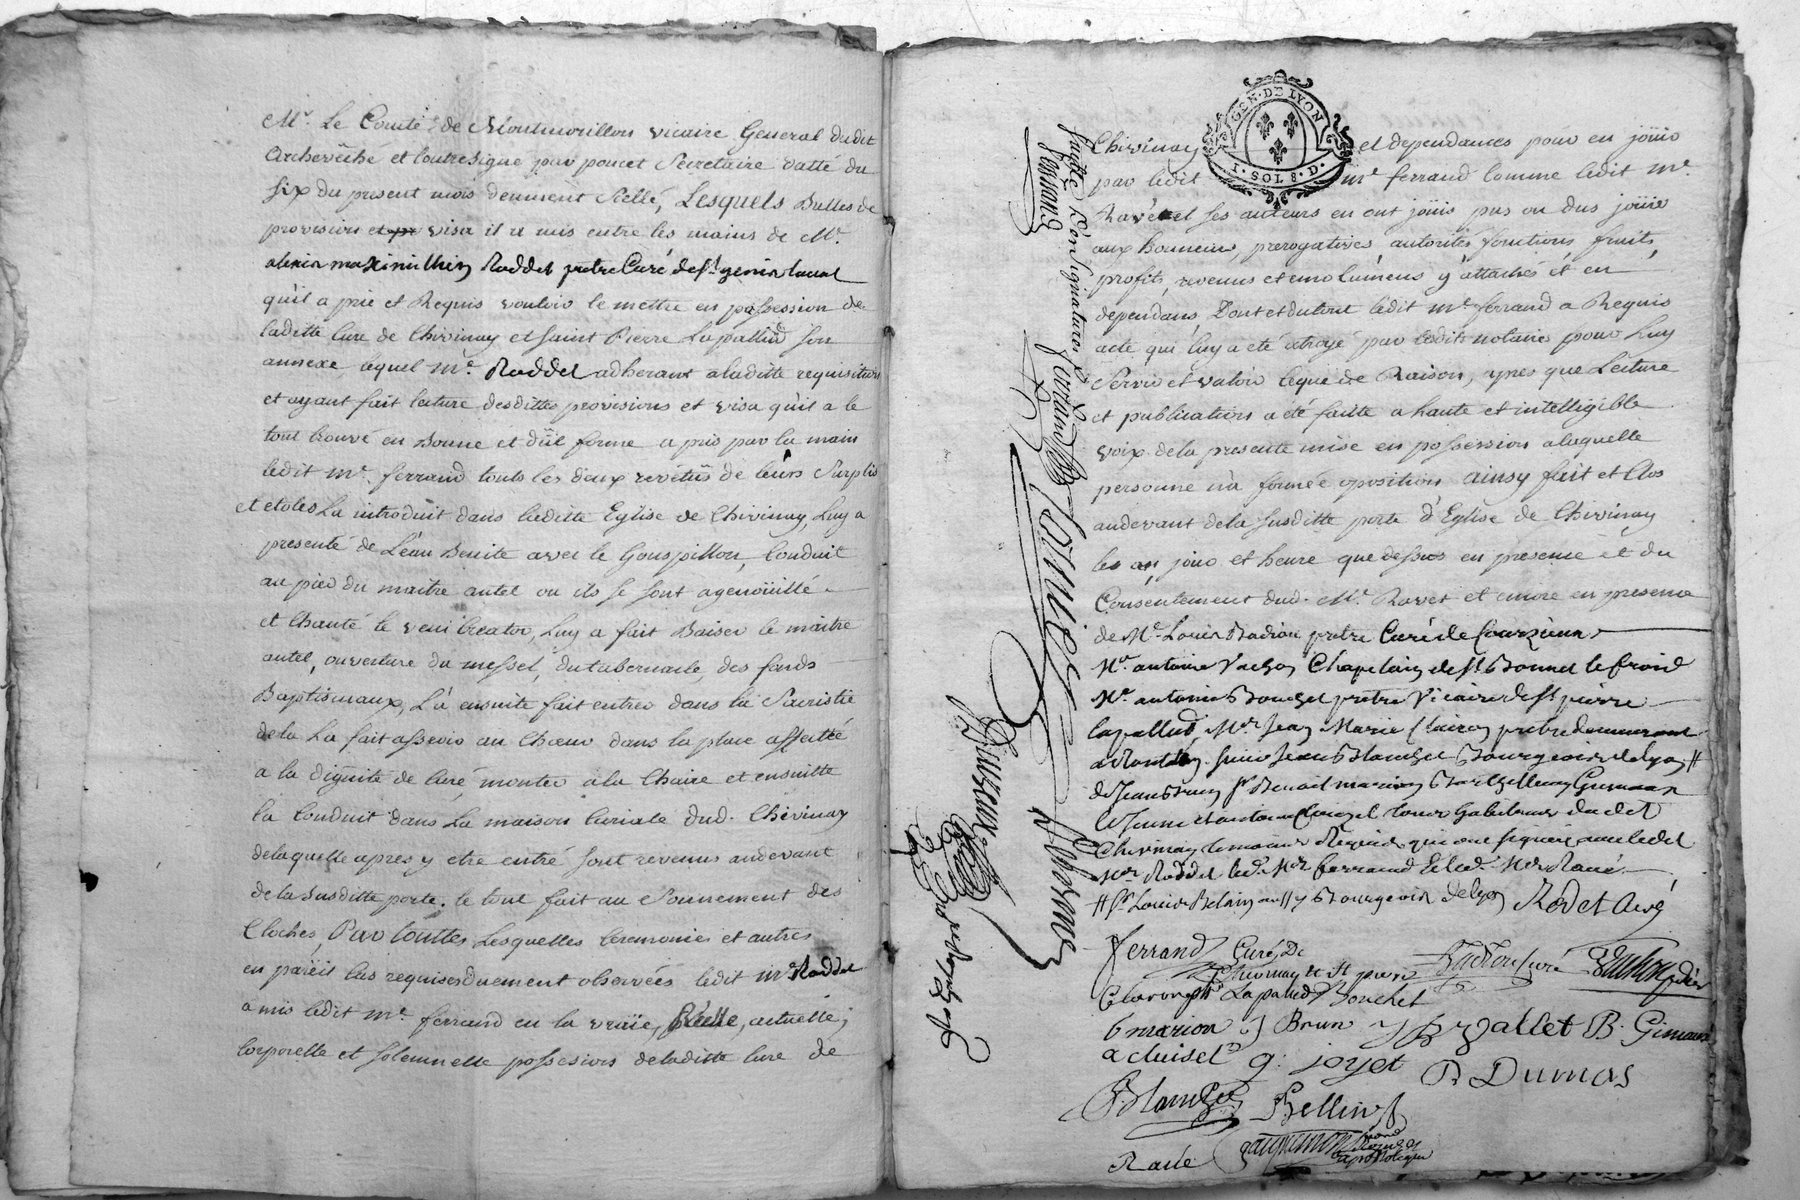 Mr. Le Comte de Montmorillon vicaire General dudit
Archevêché et Contresigné par poncet Secretaire datté du
six du present mois deument scellé, Lesquels Bulles de
provision et visa il a mis entre les mains de Mr.
alexis maximillien Roddet pretre Curé de St. genis laval
qu'il a prié et Requis vouloir le mettre en possession de
laditte Cure de Chivinay et Saint Pierre Lapallud son
annexe, lequel Me. Roddet adherant a laditte requisition
et ayant fait lecture desdittes provisions et visa qu'il a le
tout trouvé en Bonne et düe forme a pris par la main
ledit Me. ferrand touts les deux revétus de leurs Surplis
et etoles La introduit dans laditte Eglise de Chivinay, Luy a
presenté de L'eau Benite avec le Gouspillon, Conduit
au pied du maitre autel ou ils se sont agenoüillé
et Chanté le veni Creator, Luy a fait Baiser le maitre
autel, ouverture du messel, du tabernacle, des fonds
Baptismaux, L'a ensuite fait entrer dans la Sacristie
de la La fait asseoir au Choeur dans la place affectée
a la dignité de Curé monter a la Chaire et ensuitte
la Conduit dans La maison Curiale dud. Chivinay
de laquelle apres y etre entré sont revenus audevant
de la susditte porte. le tout fait au Sonnement des
Cloches, Par touttes Lesquelles Ceremonies et autres
en pareil cas requises duement observées ledit Me. Roddet
a mis ledit Me. ferrand en la vraïe, Réelle, actuelle,
Corporelle et solemnelle possession de laditte Cure de
GEN. DE LYON
1. SOL 8. D.
Chivinay et dependances pour en joüir
par ledit Me. ferrand Comme ledit Me.
Ravet et ses auteurs en ont joüis pus ou dus joüir
aux honneurs, prerogatives, autorités fonctions, fruits,
profits, revenus et emolumens y attachés et en
dependans, Dont et du tout ledit Me. ferrand a Requis
acte qui luy a été otroyé par ledit notaire pour Luy
Servir et valoir ce que de Raison, apres que Lecture
et publication a été faitte a haute et intelligible
voix de la presente mise en possession a laquelle
personne n'a formée oposition ainsy fait et Clos
audevant de la susditte porte d'Eglise de Chivinay
les an jour et heure que dessus en presence et du
Consentement dud. Me. Ravet et encore en presence
de Me. Louis Badiou pretre Curé de Courzieux
Me. antoine Vachon Chapelain de St Bonnet le froid
Me. antoine Bouchet pretre Vicaire de St pierre
lapallud, Mre Jean Marie Clairon pretre demeurant
Sieur Jean Blanchet Bourgeois de Lyon #
de Jean Brun Sr Benoit marion Barthellemy Gimaux
le Jeune et antoine Cluizel tous habitans dudit
Chivinay temoins Requis qui ont signé avec ledit
Mre Roddet led. Mre ferrand et led. Mre Ravé
# Sr. Louis Belain aussy Bourgeois de Lyon Rodet Curé
ferrand Curé De
Chivinay et St pierre Badiou curé Vachon
Clairon ptr Lapalud Bouchet
b marion J Brun vallet B. Gimaux
a cluisel g: joyet P. Dumas
Blanchet Bellin
Ravé Jacquemon
notaire
apostolique